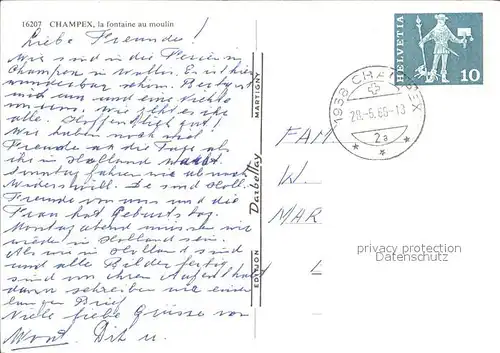 16207 CHAMPEX, la fontaine au moulin
Liebe Freunde!
Wir sind in die Ferien in
Champex in Wallis. Es ist hier
wunderbar schön. Berg
auf und eine
uns. Wie geht es
alle. Hoffentlich gut!
Wir haben noch viel
Freude an die Tage als
ihr in Holland
Sonntag fahren wir ab nach
Widerswill. Da sind Holl.
Freunde von uns und die
Frau hat Geburtstag.
Montag abend müssen wir
wieder in Holland sein.
Als wir in Holland sind
und alle Bilder fertig
sind von Ihren Aufenthalt
dann schreiben wir einen
langen Brief
Viele liebe Grüsse von
Dit u.
EDITION Darbellay MARTIGNY
HELVETIA
10
1938 CHAMPEX
20.-5.66-13
2a
FAM
W.
MAR
L
privacy protection
Datenschutz